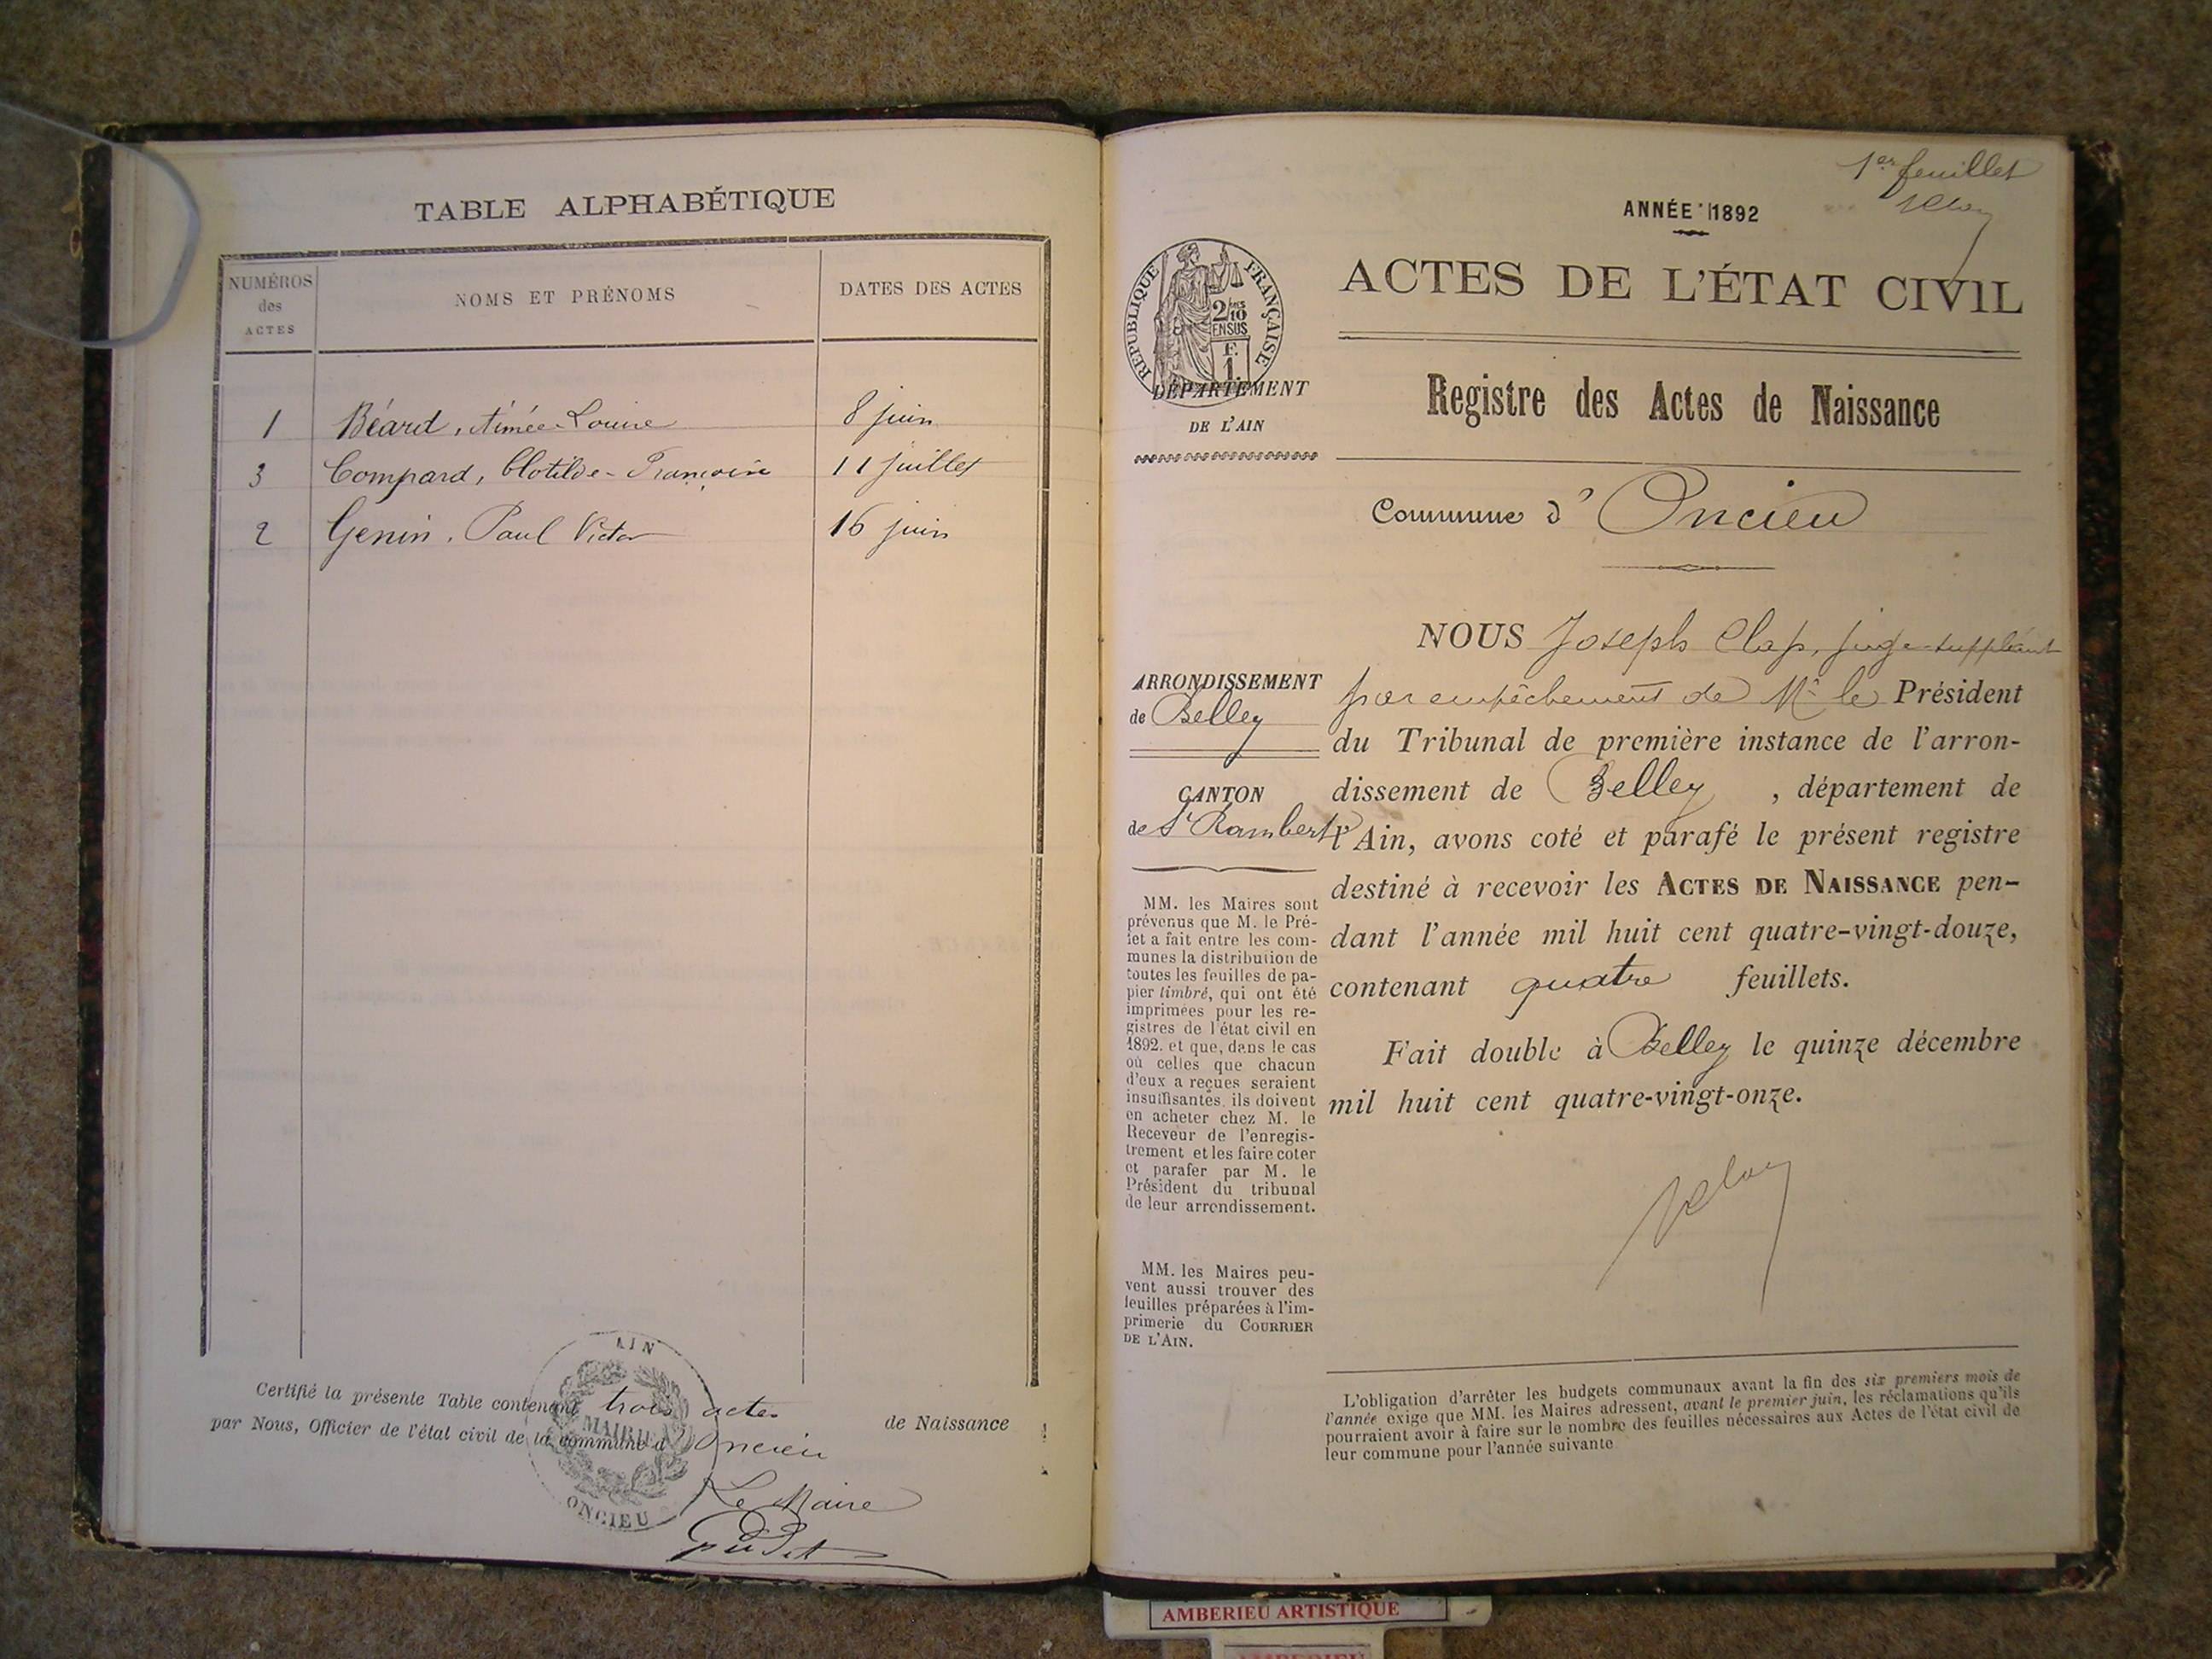 TABLE ALPHABÉTIQUE
NUMÉROS des ACTES
NOMS ET PRÉNOMS
DATES DES ACTES
1 Béard, Aimée-Louise 8 juin
3 Compard, Clotilde-Françoise 11 juillet
2 Genin, Paul Victor 16 juin
Certifié la présente Table contenant trois actes de Naissance
par Nous, Officier de l'état civil de la commune d'Oncieu
Le Maire
AIN
MAIRIE
ONCIEU
1er feuillet
ANNÉE 1892
ACTES DE L'ÉTAT CIVIL
RÉPUBLIQUE FRANÇAISE
2/10
EN SUS
F.
1
DÉPARTEMENT
DE L'AIN
Registre des Actes de Naissance
Commune d'Oncieu
ARRONDISSEMENT
de Belley
CANTON
de St Rambert
MM. les Maires sont
prévenus que M. le Pré-
fet a fait entre les com-
munes la distribution de
toutes les feuilles de pa-
pier timbré, qui ont été
imprimées pour les re-
gistres de l'état civil en
1892. et que, dans le cas
où celles que chacun
d'eux a reçues seraient
insuffisantes, ils doivent
en acheter chez M. le
Receveur de l'enregis-
trement et les faire coter
et parafer par M. le
Président du tribunal
de leur arrondissement.
MM. les Maires peu-
vent aussi trouver des
feuilles préparées à l'im-
primerie du COURRIER
DE L'AIN.
NOUS Joseph Clap, juge-suppléant
par empêchement de Mr le Président
du Tribunal de première instance de l'arron-
dissement de Belley, département de
l'Ain, avons coté et parafé le présent registre
destiné à recevoir les ACTES DE NAISSANCE pen-
dant l'année mil huit cent quatre-vingt-douze,
contenant quatre feuillets.
Fait double à Belley le quinze décembre
mil huit cent quatre-vingt-onze.
L'obligation d'arrêter les budgets communaux avant la fin des six premiers mois de
l'année exige que MM. les Maires adressent, avant le premier juin, les réclamations qu'ils
pourraient avoir à faire sur le nombre des feuilles nécessaires aux Actes de l'état civil de
leur commune pour l'année suivante
AMBERIEU ARTISTIQUE
AMBERIEU